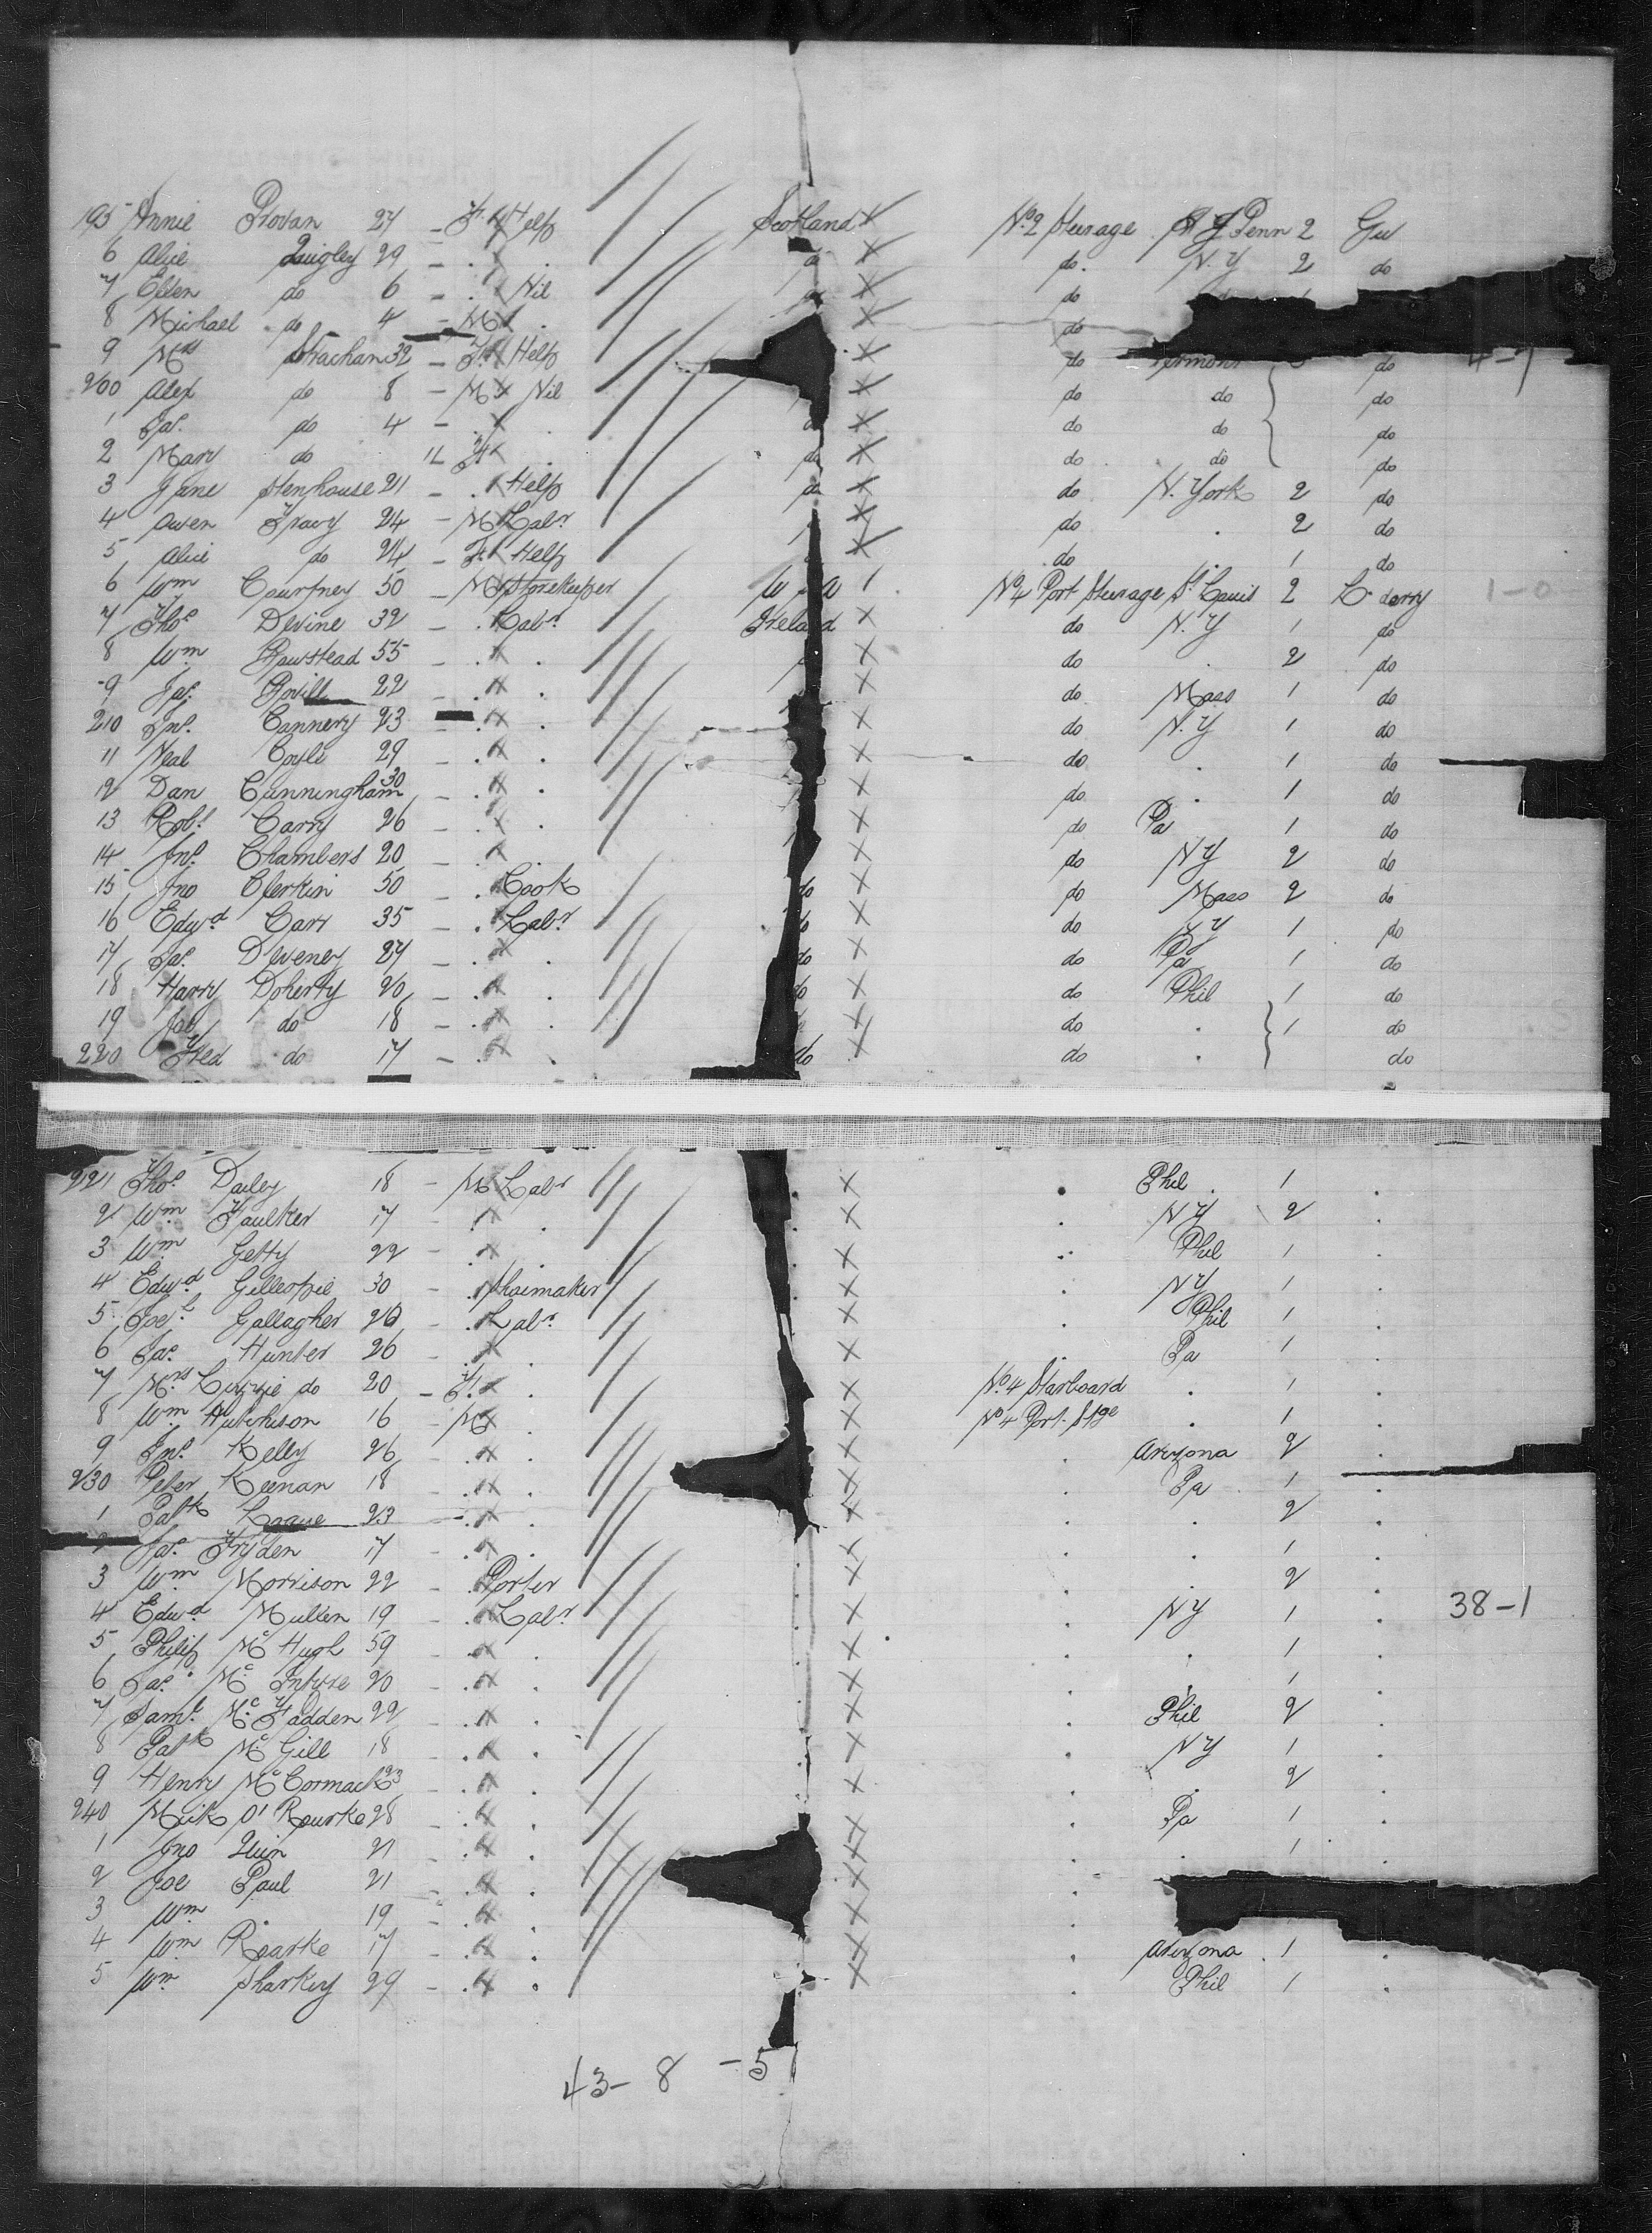 195 Annie Provan 27 - F. Help Scotland X No. 2 Steerage Penn 2 Gu
6 Alice Quigley 29 - . . do X do. N.Y 2 do
7 Ellen do 6 - . Nil do X do
8 Michael do 4 - M . X do
9 Mrs Strachan 32 - F. Help X do do 4-7
200 Alex do 8 - M Nil X do do do
1 Jas. do 4 - . . do X do do do
2 Mary do 11 F . do X do do do
3 Jane Stenhouse 21 - . Help do X do N. York 2 do
4 Owen 24 - M Labr X do . 2 do
5 Alice do 24 - F. Help X do 1 do
6 Wm Courtney 50 - M Storekeeper 1 No. 4 Port Steerage St Louis 2 L. derry 1-0
7 Thos Devine 32 - . Labr. Ireland X do N.Y 1 do
8 Wm 55 - . X . X do . 2 do
9 Jas. 22 - . X . X do Mass 1 do
210 Jno. Cannery 23 - . X . X do N.Y 1 do
11 Neal Coyle 29 - . X . X do . 1 do
12 Dan Cunningham 30 - . X . X do . 1 do
13 Robt. Carry 26 - . X . X do Pa 1 do
14 Jno. Chambers 20 - . X . X do NY 2 do
15 Jno Clerkin 50 - . Cook do X do Mass 2 do
16 Edwd Carr 35 - . Labr do X do NY 1 do
17 Jas. Deveney 27 - . X . do X do Pa 1 do
18 Harry Doherty 20 - . X . do X do Phil 1 do
19 do 18 - . X . X do . 1 do
220 Fred do 17 - . X . do X do . do
221 Thos. Dailey 18 - M Labr . X . Phil . 1 .
2 Wm Faulker 17 - . X . . X . NY 2 .
3 Wm Getty 22 - . X . . X . Phil 1 .
4 Edwd Gillespie 30 - . Shoimaker X . NY 1 .
5 Gallagher 20 - . Labr. X . Phil 1 .
6 Jas. Hunter 26 - . X . X . Pa 1 .
7 Mrs Lizzie do 20 - F. X . X No. 4 Starboard . 1 .
8 Wm Hutchison 16 - M X . X No 4 Port. Stge . 1 .
9 Jno. Kelly 26 - . X . X . Arizona 2 .
230 Peter Keenan 18 - . X . X . Pa 1 .
1 Patk 23 - . X . X . . 2 .
2 Jas. Fryden 17 - . X . . X . . 1 .
3 Wm Morrison 22 - . Porter . X . . 2 .
4 Edwd Mullen 19 - . Labr . X . NY 1 . 38-1
5 Philip McHugh 59 - . X . . X . . 1 .
6 Jas. McIntyre 20 - . X . . X . . 1 .
7 Saml. McFadden 22 - . X . . X . Phil 2 .
8 Patk McGill 18 - . X . . X . NY 1 .
9 Henry McCormack 23 - . X . . X . . 2 .
240 Meik O'Rourke 28 - . X . . X . Pa 1 .
1 Jno Quin 21 - . X . X . . 1 .
2 Joe Paul 21 - . X . X .
3 Wm . 19 - . X . X .
4 Wm Roarke 17 - . X . X . Arizona . 1 .
5 Wm Sharkey 29 - . X . X . Phil 1 .
43- 8 -51